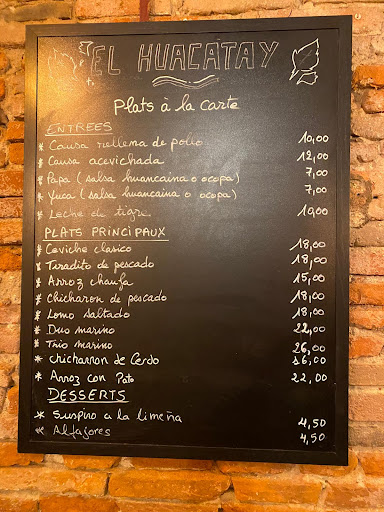 EL HUACATAY
Plats à la carte
ENTREES
* Causa rellema de pollo 10,00
* Causa acevichada 12,00
* Papa (salsa huancaina o ocopa) 7,00
* Yuca (salsa huancaina o ocopa) 7,00
* Leche de tigre 10,00
PLATS PRINCIPAUX
* Ceviche clasico 18,00
* Tiradito de pescado 18,00
* Arroz chaufa 15,00
* Chicharon de pescado 18,00
* Lomo saltado 18,00
* Duo marino 22,00
* Trio marino 26,00
* chicharron de Cerdo 16,00
* Arroz con Pato 22,00
DESSERTS
* Suspiro a la limeña 4,50
* Alfajores 4,50